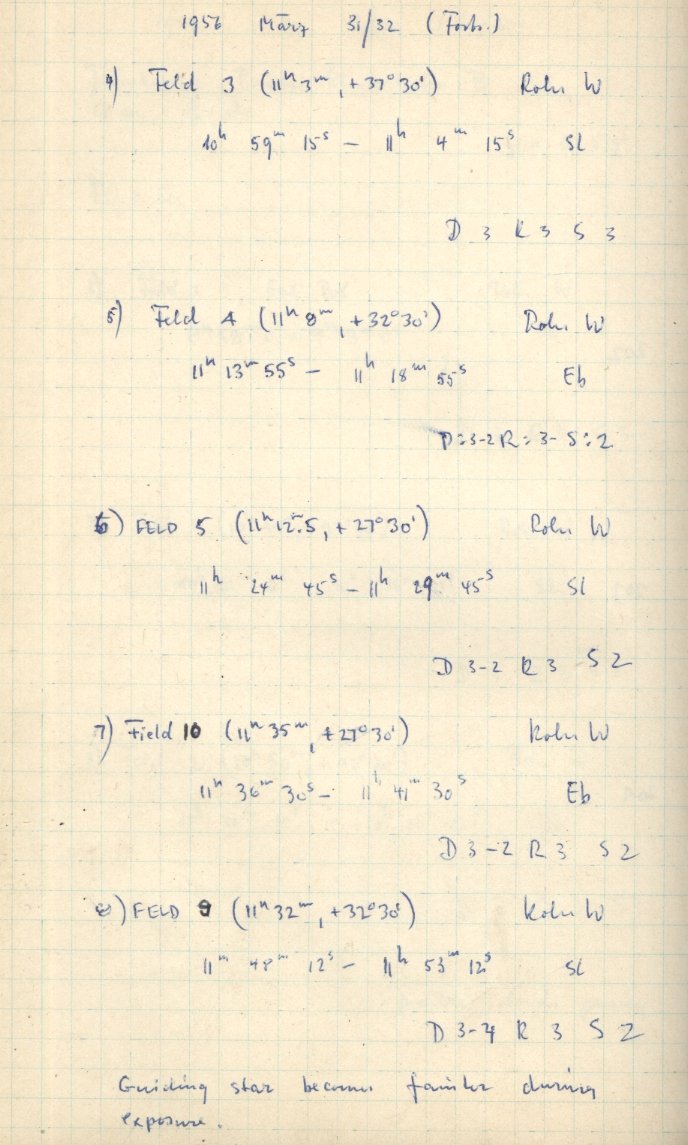 1956 März 31/32 (Forts.)
4) Feld 3 (11ʰ3ᵐ, +37°30') Rohr W
10ʰ 59ᵐ 15ˢ – 11ʰ 4ᵐ 15ˢ Sl
D 3 R 3 S 3
5) Feld 4 (11ʰ8ᵐ, +32°30') Rohr W
11ʰ 13ᵐ 55ˢ – 11ʰ 18ᵐ 55ˢ Eb
D=3-2 R=3- S=2
6) FELD 5 (11ʰ12ᵐ.5, +27°30') Rohr W
11ʰ 24ᵐ 45ˢ – 11ʰ 29ᵐ 45ˢ Sl
D 3-2 R 3 S 2
7) Field 10 (11ʰ35ᵐ, +27°30') Rohr W
11ʰ 36ᵐ 30ˢ – 11ʰ 41ᵐ 30ˢ Eb
D 3-2 R 3 S 2
8) FELD 9 (11ʰ32ᵐ, +32°30') Rohr W
11ᵐ 48ᵐ 12ˢ – 11ʰ 53ᵐ 12ˢ Sl
D 3-4 R 3 S 2
Guiding star becomes fainter during
exposure.